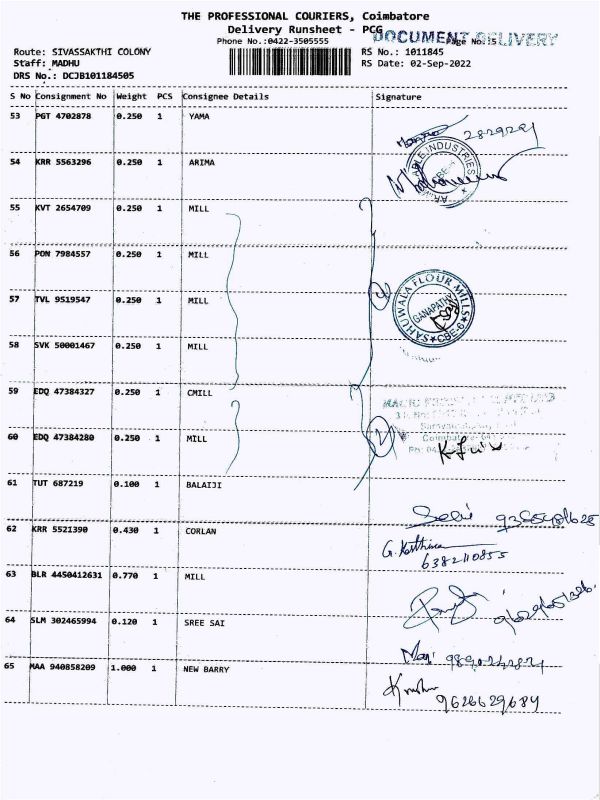 THE PROFESSIONAL COURIERS, Coimbatore
Delivery Runsheet - PCG
DOCUMENT DELIVERY
Phone No.:0422-3505555
Page No.:5
Route: SIVASSAKTHI COLONY
RS No.: 1011845
Staff: MADHU
RS Date: 02-Sep-2022
DRS No.: DCJB101184505
S No Consignment No Weight PCS Consignee Details Signature
53 PGT 4702878 0.250 1 YAMA
54 KRR 5563296 0.250 1 ARIMA
55 KVT 2654709 0.250 1 MILL
56 PON 7984557 0.250 1 MILL
57 TVL 9519547 0.250 1 MILL
SAHUWALA FLOUR MILLS
GANAPATHY
CBE-6
58 SVK 50001467 0.250 1 MILL
59 EDQ 47384327 0.250 1 CMILL
60 EDQ 47384280 0.250 1 MILL
2
61 TUT 687219 0.100 1 BALAIJI
62 KRR 5521390 0.430 1 CORLAN
G. Karthika
6382110855
63 BLR 4450412631 0.770 1 MILL
64 SLM 302465994 0.120 1 SREE SAI
65 MAA 940858209 1.000 1 NEW BARRY
9626629684